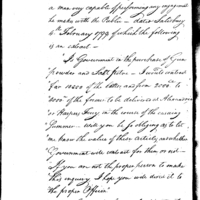 a man very capable of performing any engagement
he makes with the Public - dated Salisbury
4th February 1793 of which the following
is an extract -
"Is Government in the purchase of Gun
Powder and Salt Petre - I would contract
for 10000 of the latter and from 2000 to
3000 of the former to be delivered at Alexandria
or Harpers Ferry in the course of the ensuing
Summer - will you be so obliging as to let
me know the value of these Articles, & whether
Government will contract for them or not -
If you are not the proper person to make
this enquiry I hope you will direct it to
the proper Officer"